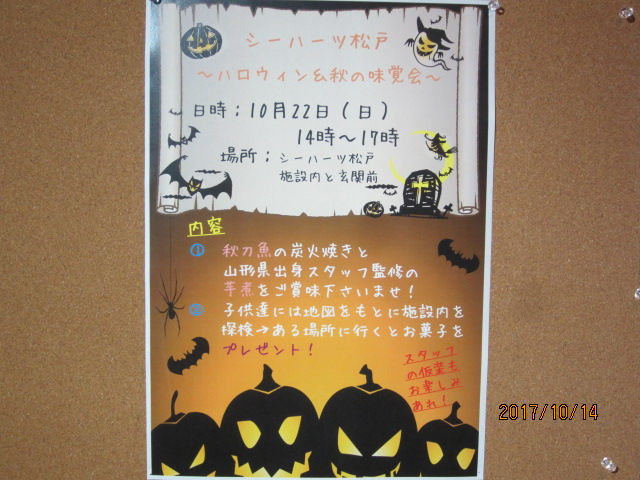 シーハーツ松戸
～ハロウィン&秋の味覚会～
日時：10月22日（日）
14時～17時
場所：シーハーツ松戸
施設内と玄関前
内容
① 秋刀魚の炭火焼きと
山形県出身スタッフ監修の
芋煮をご賞味下さいませ！
② 子供達には地図をもとに施設内を
探検→ある場所に行くとお菓子を
プレゼント！
スタッフ
の仮装も
お楽しみ
あれ！
2017/10/14